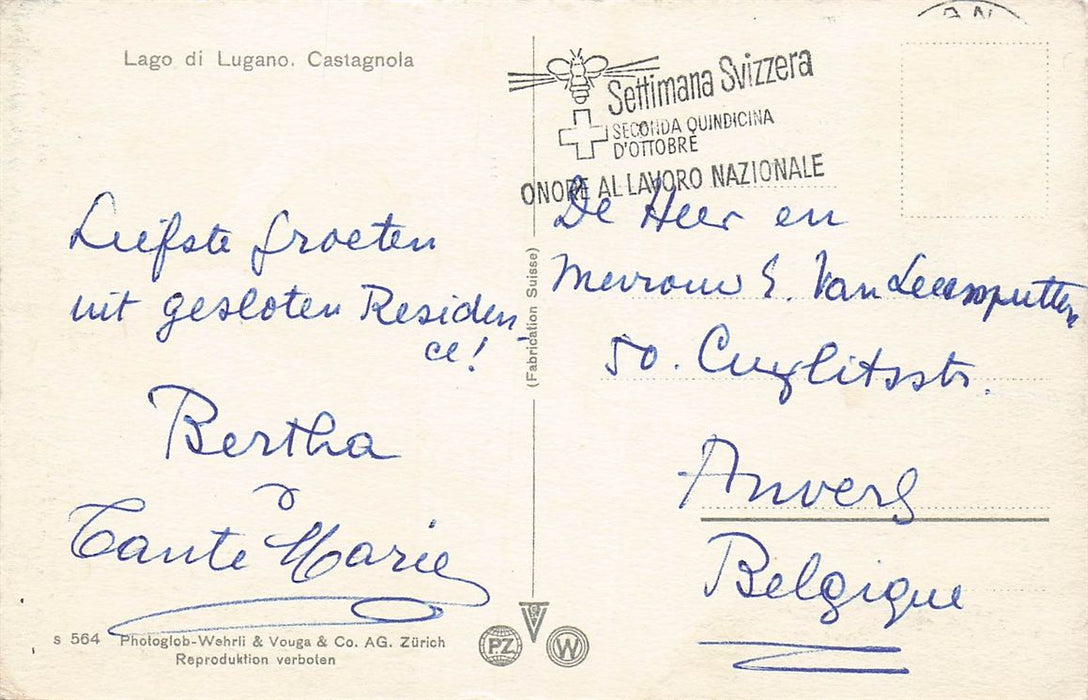 Lago di Lugano. Castagnola
Settimana Svizzera
SECONDA QUINDICINA
D'OTTOBRE
ONORE AL LAVORO NAZIONALE
Liefste groeten
uit gesloten Residen-
ce!
Bertha
Tante Marie
De Heer en
Mevrouw E. Van
50.
Anvers
Belgique
(Fabrication Suisse)
s 564 Photoglob-Wehrli & Vouga & Co. AG. Zürich
Reproduktion verboten
PZ
W